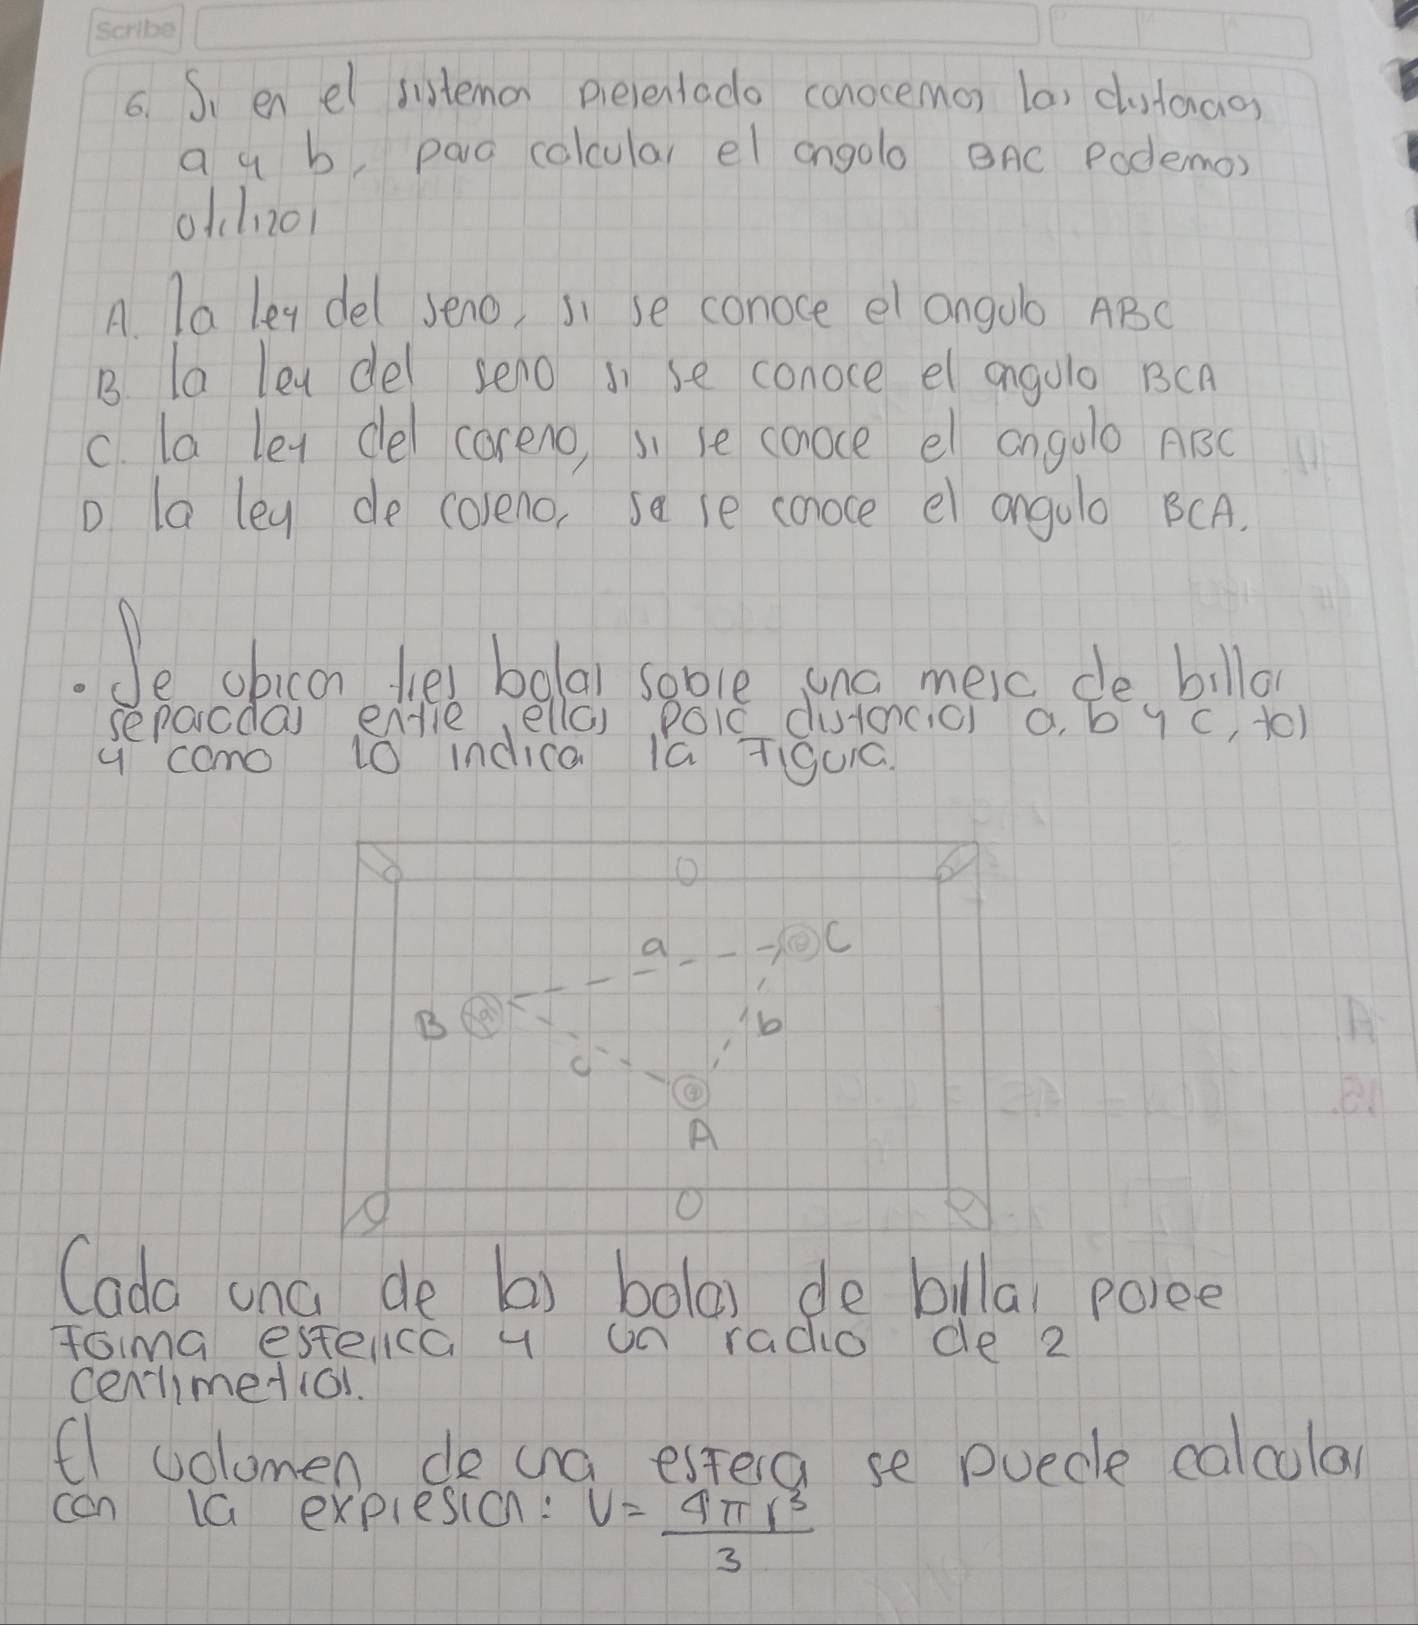 Scribe
6. Si en el sistema presentado conocemos las distancias
a y b, para calcular el angulo BAC Podemos
utilizar
A. la ley del seno, si se conoce el angulo ABC
B. la ley del seno si se conoce el angulo BCA
C. la ley del coseno, si se conoce el angulo ABC
D la ley de coseno, se se conoce el angulo BCA.
• Se ubican tres bolas sobre una mesa de billar
separadas entre ellas por distancias a, b y c, tal
y como lo indica la Figura.
a C
B b
c
A
Cada una de las bolas de billar posee
Forma esferica y un radio de 2
centimetros.
El volumen de una esfera se puede calcular
con la expresion: V = 4πr³
3